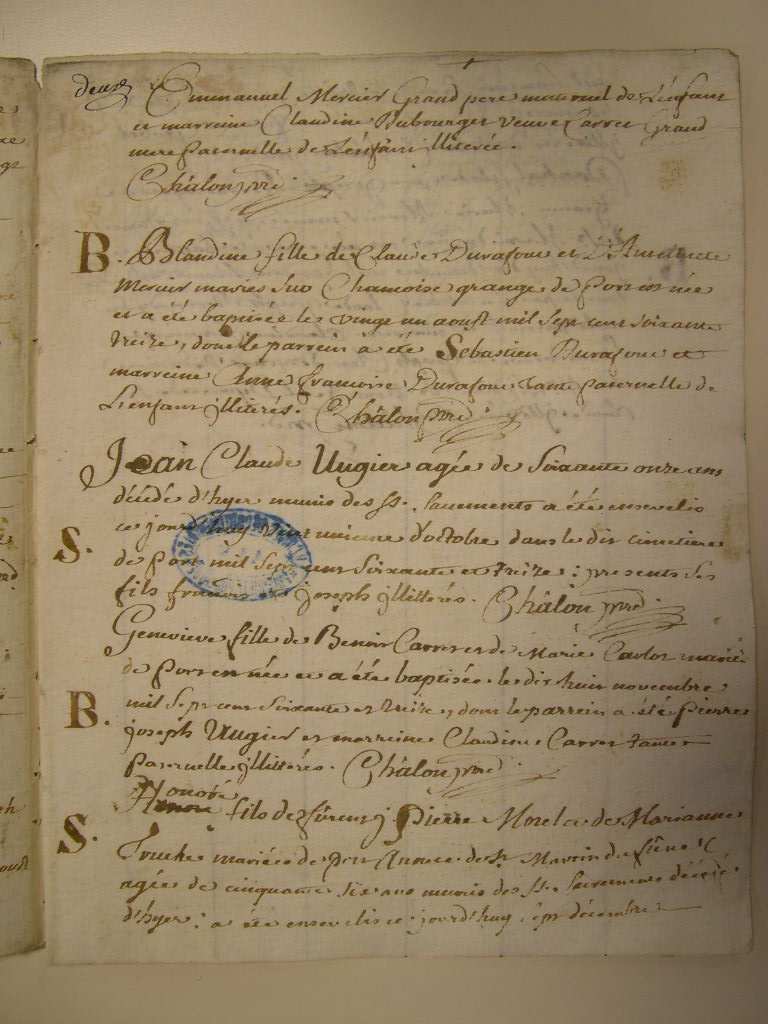 deux
Emmanuel Mercier Grand pere maternel de L'enfant
et marreine Claudine Dubourget veuve Carret Grand
mere Paternelle de L'enfant illiterée.
Châlon prê
B. Blandine fille de Claude Durafour et D'
Mercier mariés sur Chamoise grange de Port est née
et a été baptisée le vingt un aoust mil sept cent soixante
treize, dont le parrein a été Sebastien Durafour et
marreine Anne francoise Durafour tante Paternelle de
L'enfant illiterés. Châlon prê
Jean Claude Vugier agée de Soixante onze ans
décédé d'hyer munis des Sts. Sacrements a été enseveli
S. ce jourd'huy vingt unieme d'octobre dans le dit cimetiere
de Port mil sept cent soixante et treize : presents ses
fils francois et joseph illitterés. Châlon prê
Genevieve fille de Benoit Carret et de Marie Carlot mariés
de Port est née et a été baptisée le dix huit novembre
B. mil sept cent soixante et treize, dont le parrein a été Pierre
joseph Vugier et marreine Claudine Carret tante
Paternelle illitterés. Châlon prê
Honoré
S. fils de Pierre Morel et de Marianne
mariés de Port de St Martin du frêne
agée de cinquante six ans munis des Sts. Sacrements décédé
d'hyer : a été enseveli ce jourd'huy sept décembre